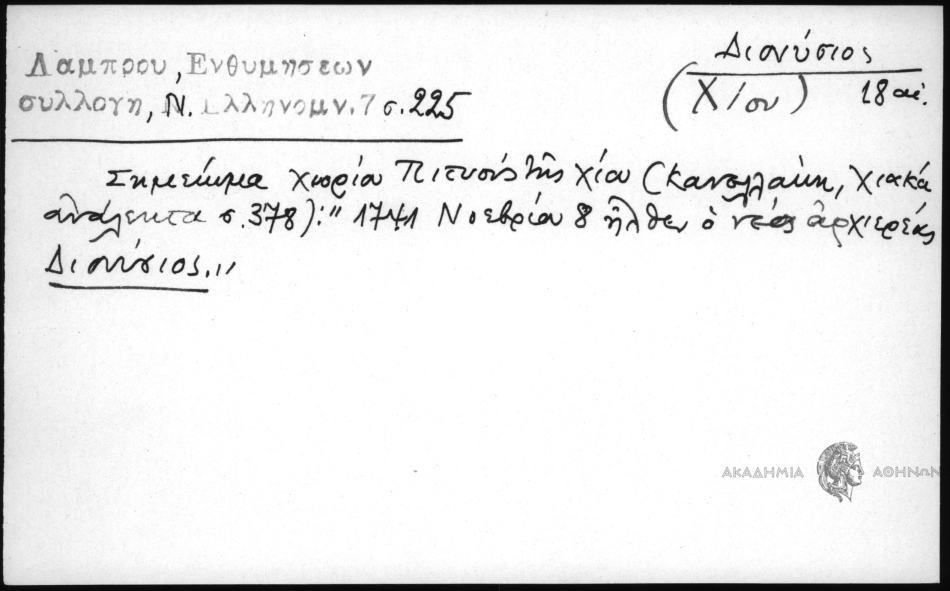 Λαμπρου, Ενθυμησεων
συλλογη, Ν. Ελληνομν. 7 σ. 225
Διονύσιος
(Χίου) 18 αἰ.
Σημείωμα χωρίου Πιτυοῦς τῆς Χίου (Κανελλάκη, Χιακὰ
ἀνάλεκτα σ. 378): " 1741 Νοεβρίου 8 ἦλθεν ὁ νέος ἀρχιερέας
Διονύσιος."
ΑΚΑΔΗΜΙΑ ΑΘΗΝΩΝ